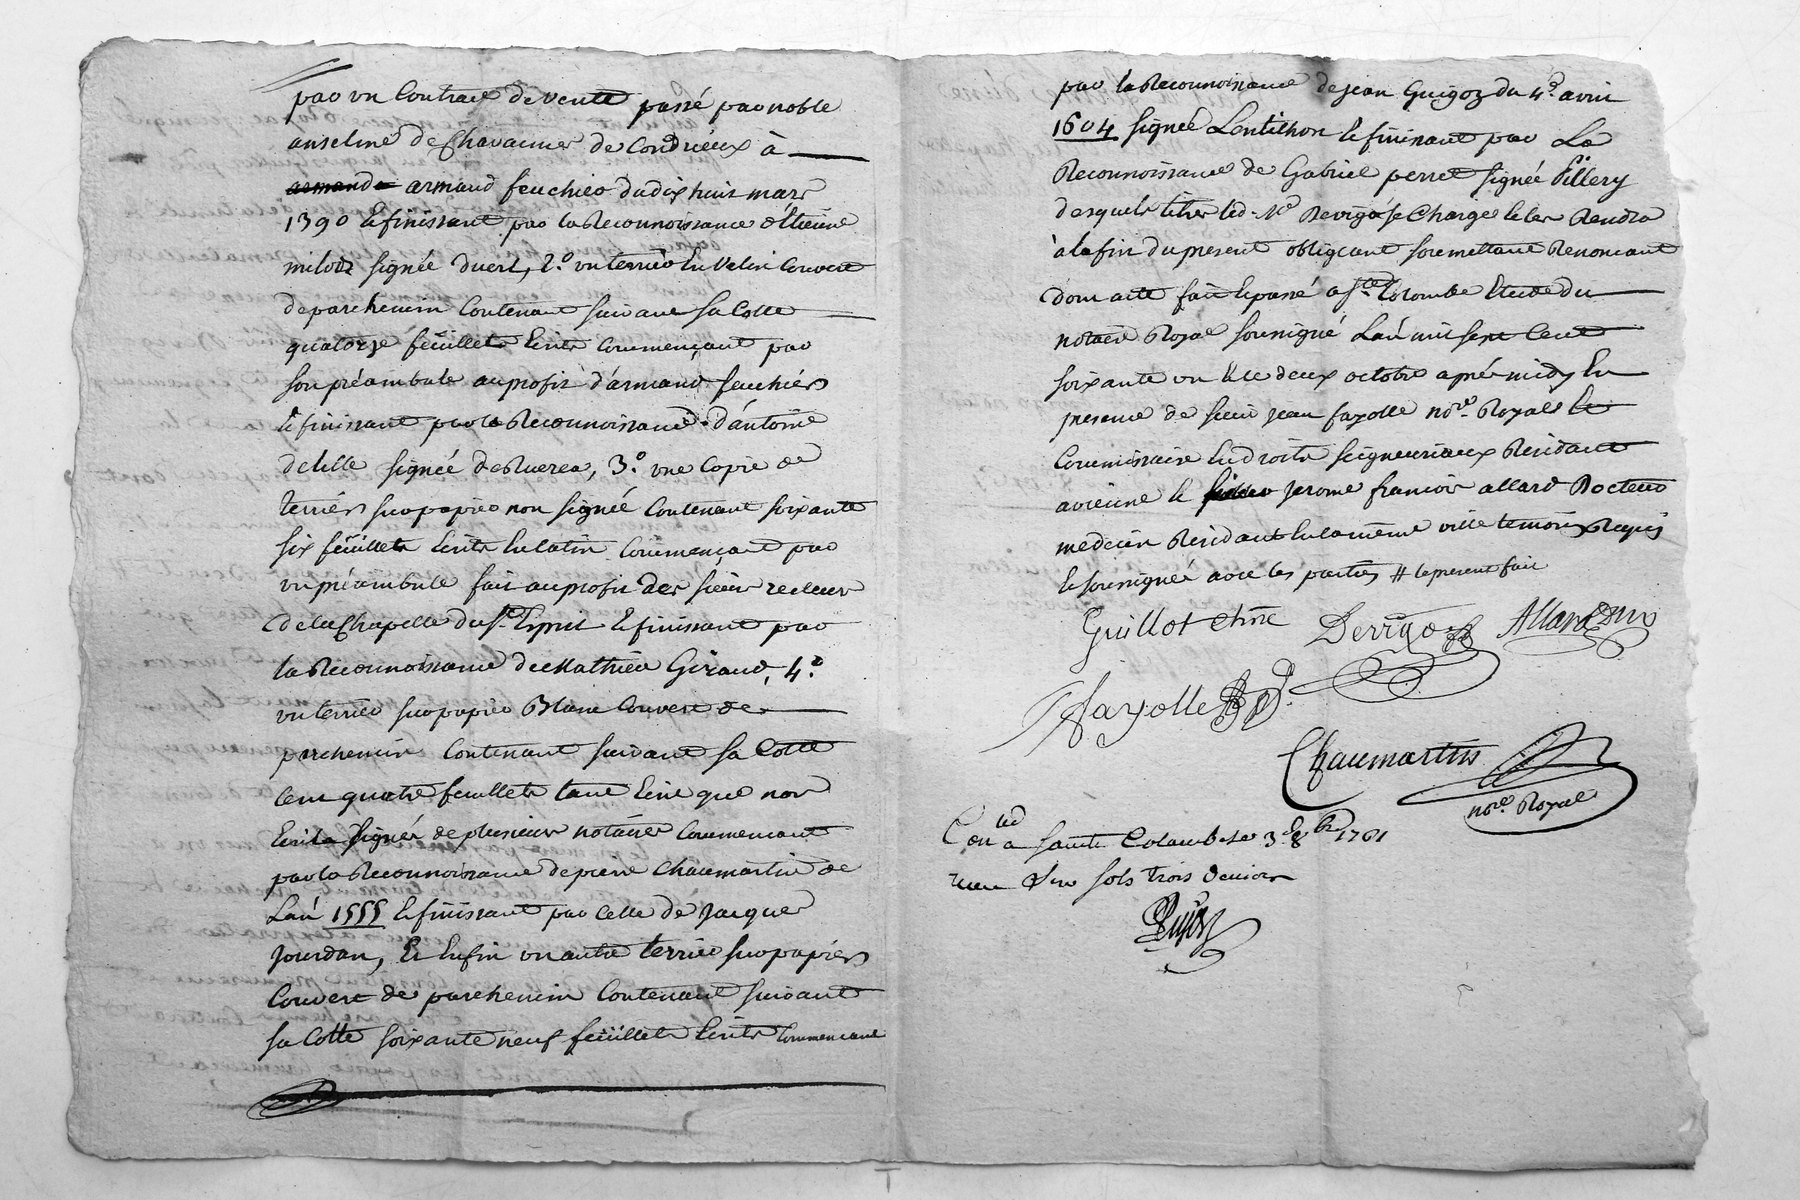 par un Contract de vente passé par noble
anselme de Chavannes de Condrieux à
armand feuchier du dix huit mars
1390 et finissant par la Reconnoissance d'Etienne
signée 2.o un terrier en velin Couvert
de parchemin Contenant suivant sa Cotte
quatorze feüillets Ecrits Commençant par
son préambule au profit d'armand feuchier
et finissant par la Reconnoissance d'antoine
delille signée 3.o une Copie de
terrier sur papier non signée Contenant soixante
six feüillets Ecrits en latin Commençant par
un préambule fait au profit des sieurs recteurs
de la Chapelle du St. Esprit et finissant par
la Reconnoissance de Mathieu Giraud, 4.o
un terrier sur papier Blanc Couvert de
parchemin Contenant suivant sa Cotte
Cent quatre feuillets tant Ecrits que non
Ecrits signés de plusieurs notaires Commençant
par la Reconnoissance de pierre Chaumartin de
L'an 1555 et finissant par celle de Jacques
Jourdan, Et Enfin un autre terrier sur papier
Couvert de parchemin Contenant suivant
sa Cotte soixante neuf feüillets Ecrits Commencant
par la Reconnoissance de jean Guigoz du 4.e avril
1604 signée Lentilhon et finissant par La
Reconnoissance de Gabriel perret signée Pillery
desquels titres led. Me. Derigo se Charge et les Rendra
à la fin du present obligeant soumettant Renoncant
dont acte fait et passé a Ste. Colombe Etude du
notaire Royal soussigné L'an mil sept Cent
soixante un et le deux octobre après midy En
presence de sieur jean fayolle nore. Royal et
Commissaire En droits seigneuriaux Residant
a vienne et jerome francois allard Docteur
medecin Residant En la même ville temoins Requis
et soussignés avec les parties # le present fait
Guillot Derigo Allard
Fayolle
Chaumartin
nore. Royal
Conlled a Sainte Colombe le 3e 8bre 1761
sols trois deniers